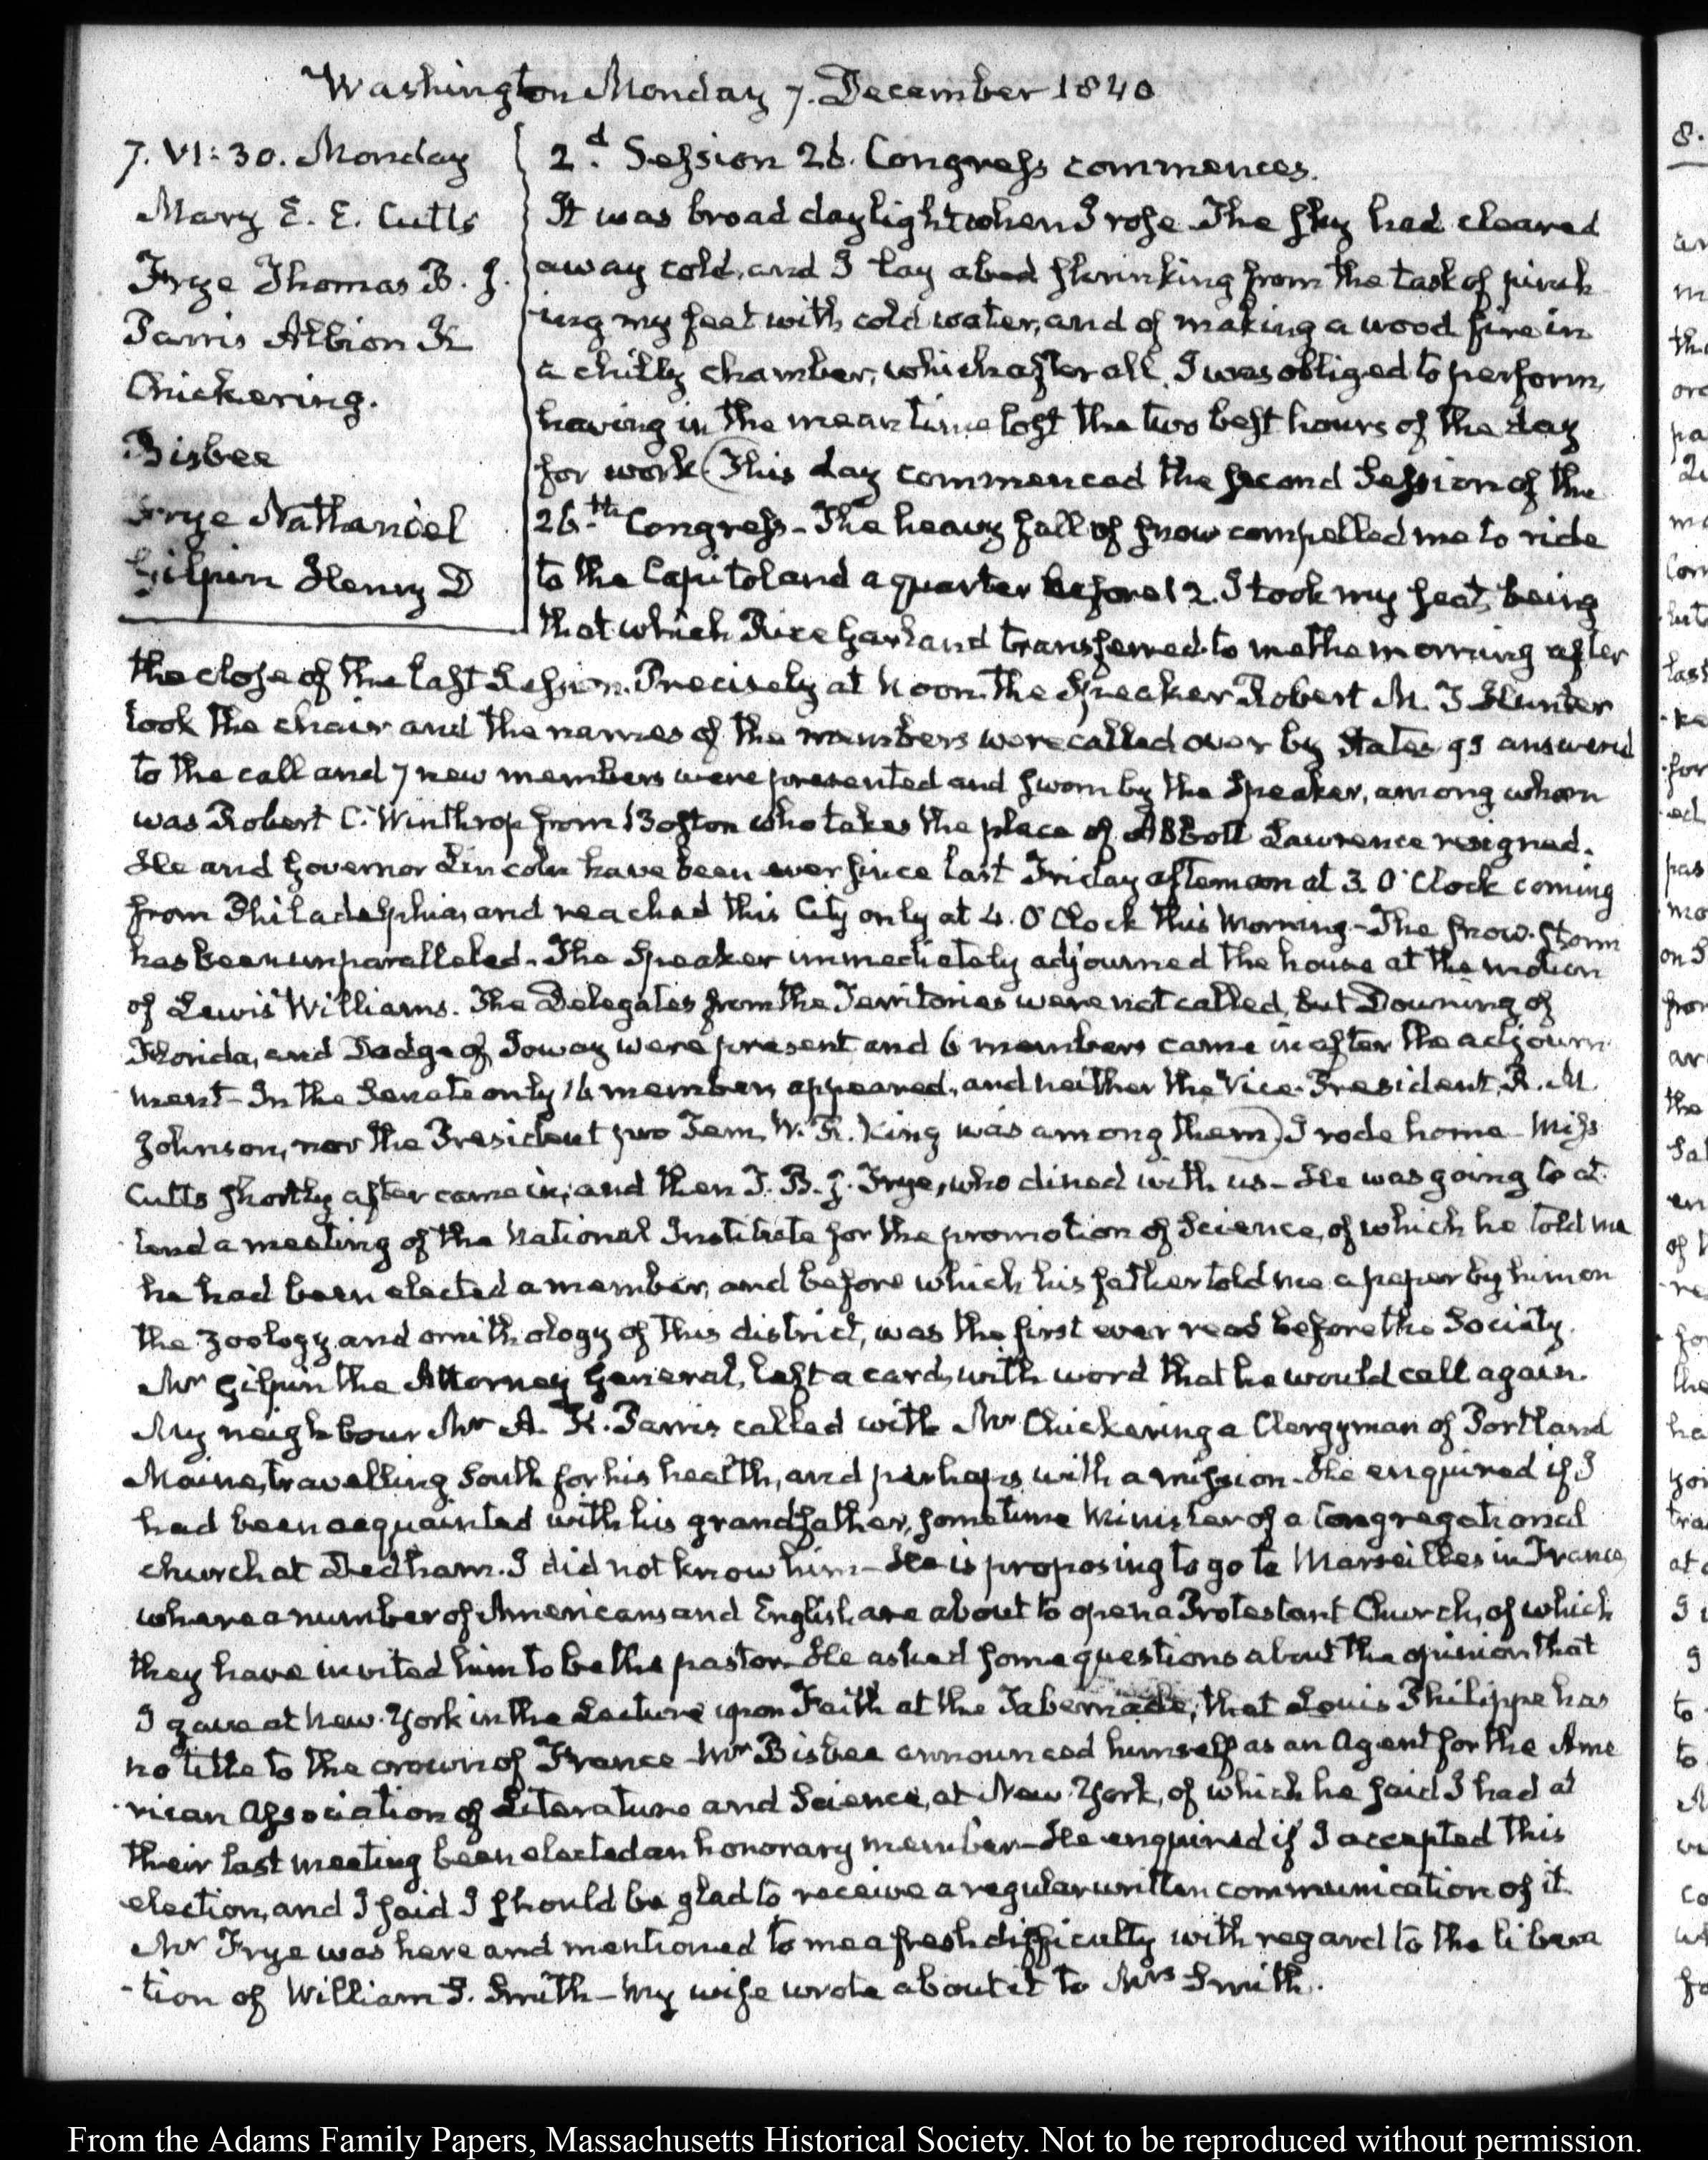 Washington Monday 7. December 1840
7. VI:30. Monday
Mary E. E. Cutts
Frye Thomas B. J.
Parris Albion K
Chickering.
Bisbee
Frye Nathaniel
Gilpin Henry D
2.d Session 26. Congress commences.
It was broad daylight when I rose. The sky had cleared
away cold, and I lay abed shrinking from the task of pinch
-ing my feet with cold water, and of making a wood fire in
a chilly chamber, which after all, I was obliged to perform,
having in the mean time lost the two best hours of the day
for work (This day commenced the second Session of the
26.th Congress - The heavy fall of snow compelled me to ride
to the Capitol and a quarter before 12. I took my seat, being
that which Rice Garland transferred to me the morning after
the close of the last Session. Precisely at Noon the Speaker Robert M. T Hunter
took the chair and the names of the members were called over by States 99 answered
to the call and 7 new members were presented and sworn by the Speaker, among whom
was Robert C. Winthrop from Boston who takes the place of Abbott Lawrence resigned.
He and Governor Lincoln have been ever since last Friday afternoon at 3. O'Clock coming
from Philadelphia, and reached this City only at 4. O'Clock this Morning - The snow-storm
has been unparalleled. The Speaker immediately adjourned the house at the motion
of Lewis Williams. The Delegates from the Territories were not called, but Downing of
Florida, and Dodge of Ioway were present and 6 members came in after the adjourn-
-ment - In the Senate only 16 members appeared, and neither the Vice-President, R. M.
Johnson, nor the President pro Tem, W. R. King was among them) I rode home - Miss
Cutts shortly after came in; and then T. B. J. Frye, who dined with us - He was going to at-
-tend a meeting of the National Institute for the promotion of Science, of which he told me
he had been elected a member, and before which his father told me a paper by him on
the zoology and ornithology of this district, was the first ever read before the Society.
Mr Gilpin the Attorney General, left a card, with word that he would call again.
My neighbour Mr A. K. Parris called with Mr Chickering a Clergyman of Portland
Maine, travelling South for his health, and perhaps with a mission - He enquired if I
had been acquainted with his grandfather, sometime Minister of a Congregational
church at Dedham. I did not know him - He is proposing to go to Marseilles in France,
where a number of Americans and English are about to open a Protestant Church, of which
they have invited him to be the pastor - He asked some questions about the opinion that
I gave at New-York in the Lecture upon Faith at the Tabernacle, that Louis Philippe has
no title to the crown of France - Mr Bisbee announced himself as an Agent for the Ame
-rican Association of Literature and Science, at New-York, of which he said I had at
their last meeting been elected an honorary member - He enquired if I accepted this
election, and I said I should be glad to receive a regular written communication of it
Mr Frye was here and mentioned to me a fresh difficulty with regard to the libera
-tion of William S. Smith - My wife wrote about it to Mrs Smith.
From the Adams Family Papers, Massachusetts Historical Society. Not to be reproduced without permission.